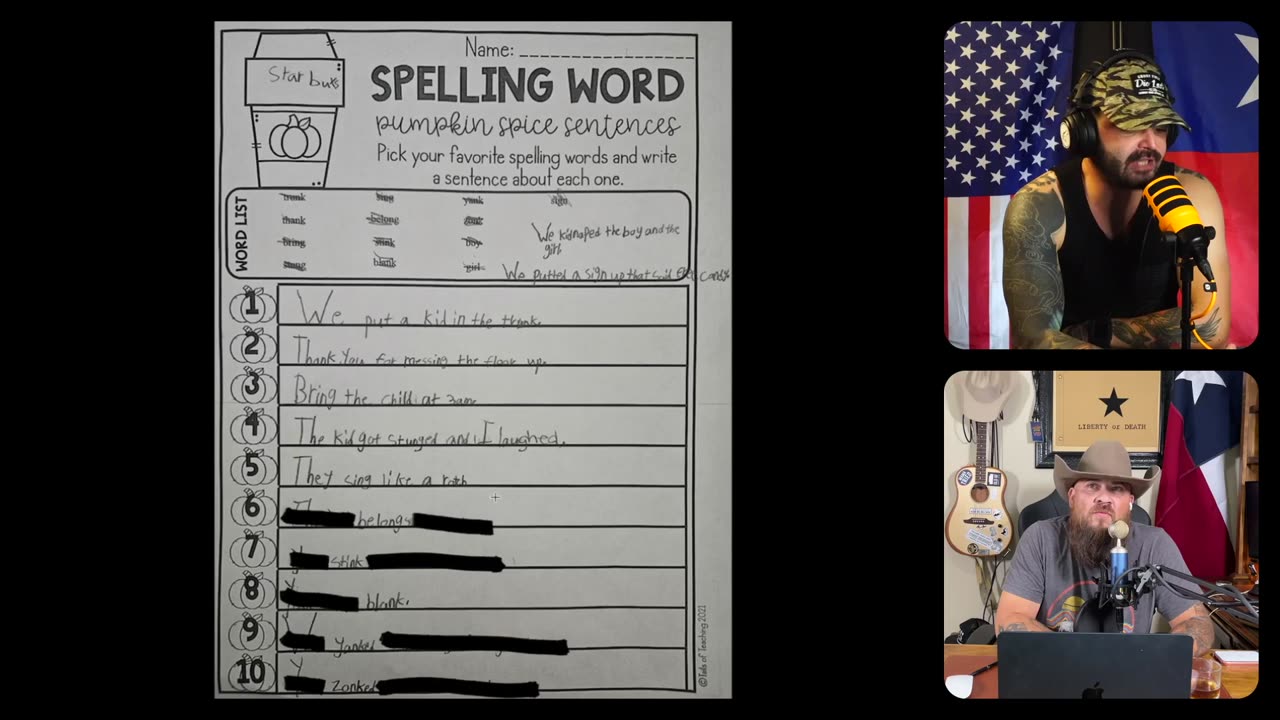 Name:
Star buks
SPELLING WORD
pumpkin spice sentences
Pick your favorite spelling words and write
a sentence about each one.
WORD LIST
trunk sing yank sign
thank belong
bring stink boy
stung blank girl
We kidnaped the boy and the
girl
We putted a sign up that said free candy
1 We put a kid in the trunk.
2 Thank you for messing the floor up.
3 Bring the child at 3am.
4 The kid got stunged and I laughed.
5 They sing like a
6 belongs
7 stink
8 blank.
9 Yanked
10 Zonked
©Tails of Teaching 2021
LIBERTY or DEATH